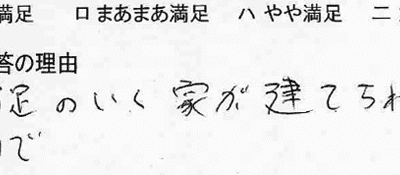 満足 ロまあまあ満足 ハやや満足 ニ
答の理由
足のいく家が建てられ
で